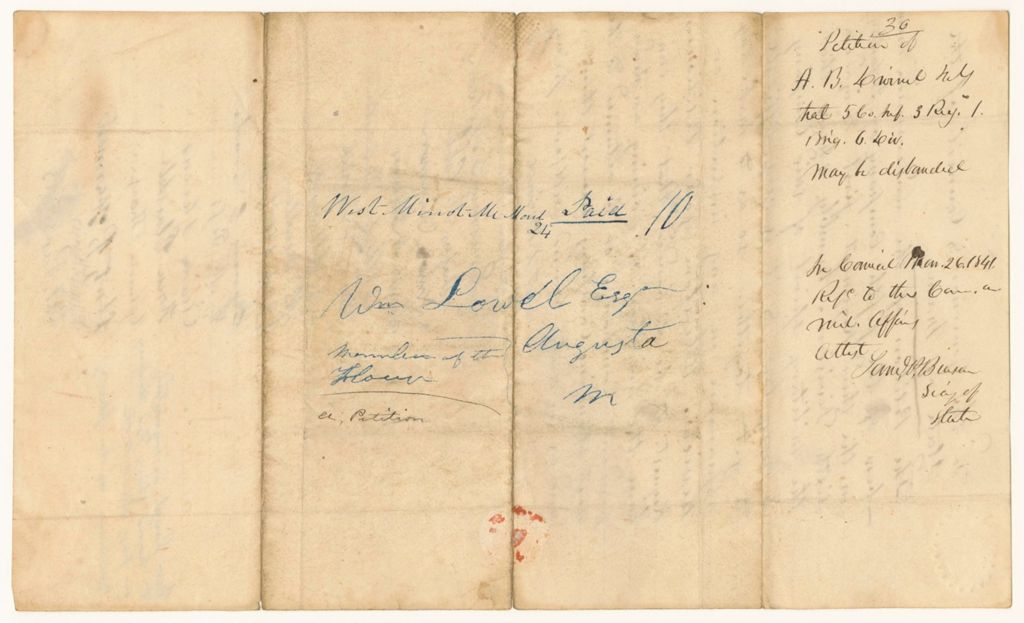 West Minot Me Mach 24 Paid 10
Wm Lowell Esqr
Augusta
Member of the
House
M
a, Petition
30
Petition of
A. B. Dwinel
that 5 Co. Inf. 3 Reg. 1.
Brig. 6. Div.
may be disbanded
In Council Mar. 26. 1841
Refd to the Com. on
Mil. Affairs
Attest
Saml P. Benson
Secy of
State